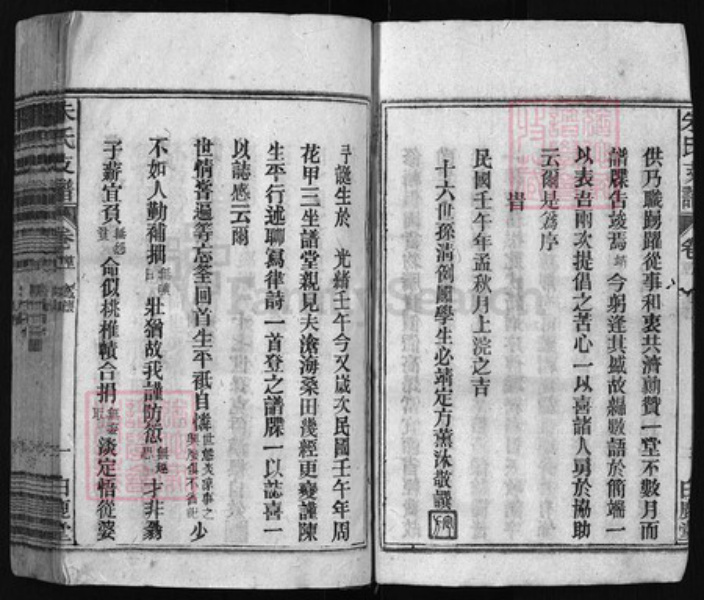 供乃職踴躍從事和衷共濟勷贊一堂不數月而
譜牒告竣焉靖今躬逢其盛故編數語於簡端一
以表吾兩次提倡之苦心一以喜諸人勇於協助
云爾是為序
旹
民國壬午年孟秋月上浣之吉
十六世孫清例國學生必靖定方薰沐敬譔
予誕生於光緒壬午今又歲次民國壬午年周
花甲三坐譜堂親見夫滄海桑田幾經更變謹陳
生平行述聊寫律詩一首登之譜牒一以誌喜一
以誌感云爾
世情嘗遍等忘荃回首生平祗自 少
不如人勤補拙 壯猶故我謹防愆 才非
子薪宜負 命似桃椎幘合捐 淡定悟從婆
朱氏支譜
白鹿堂
朱氏支譜
白鹿堂
FamilySearch